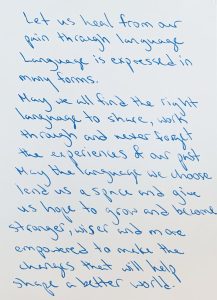 Let us heal from our
pain through language
Language is expressed in
many forms.
May we all find the right
language to share, work
through and never forget
the experiences of our past
May the language we choose
lend us a space and give
us hope to grow and become
stronger, wiser and more
empowered to make the
changes that will help
shape a better world.